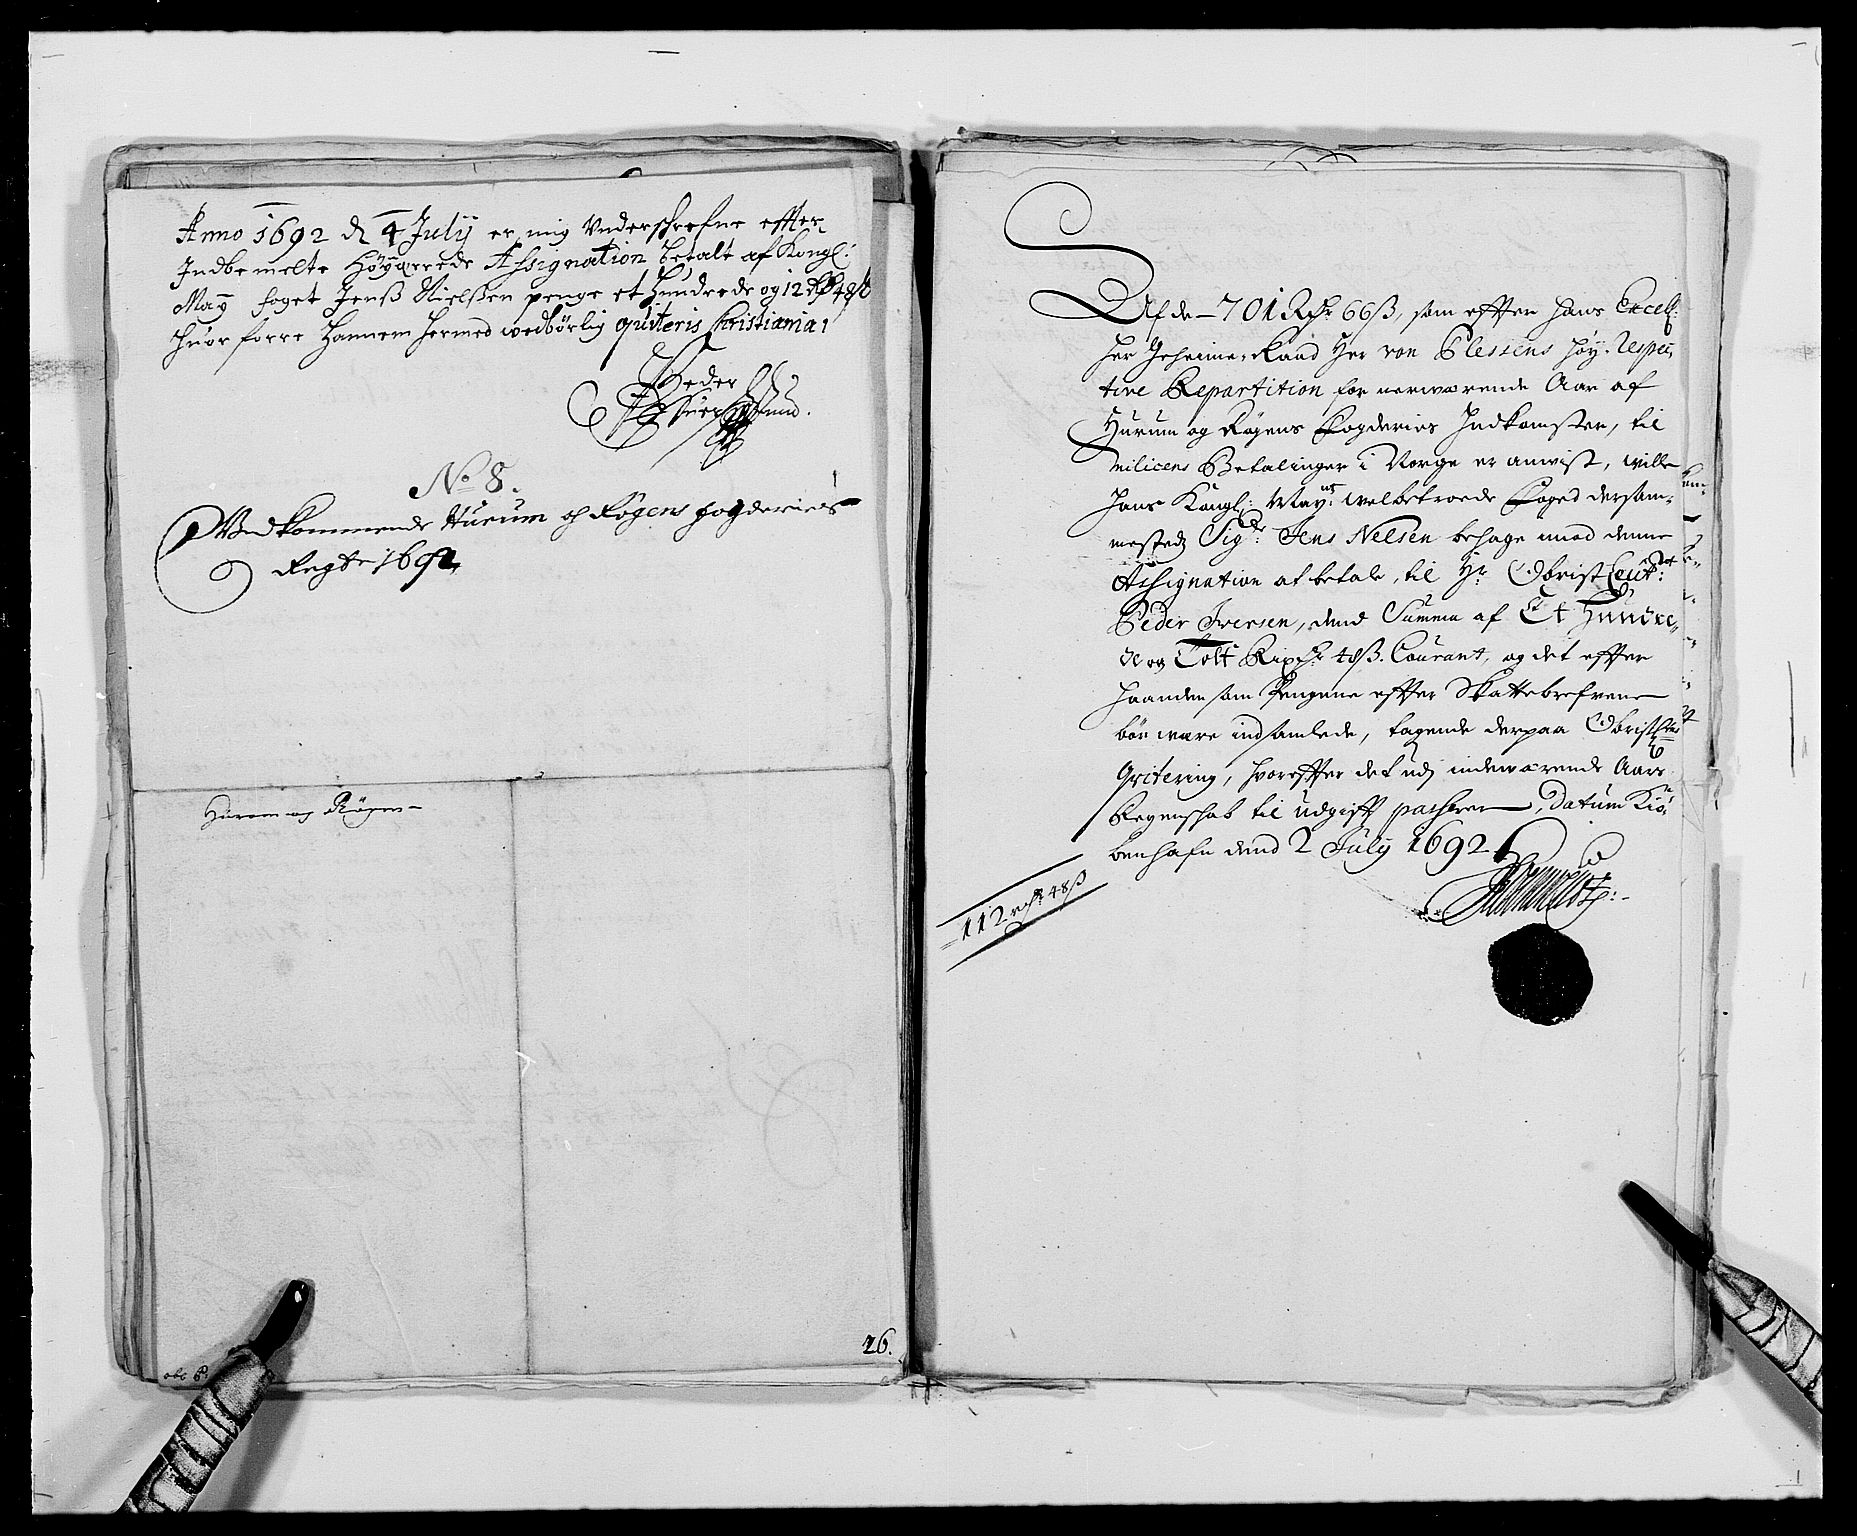 Anno 1692 d 4 July er mig Underschrefne effter
Indbemelte Høÿærede Assignation betalt af Kongl:
Maÿ foget Jenß Nielßen penge et Hundrede og 12 Rdr 48 ß
Huorforre Hannem hermed wedbørlig quiteris Christiania
Peder
No 8.
Vedkommende Hurum og Røgens fogderies
Regtr 1692
Hurum og Røgen
26.
Af de 701 Rdr 66 ß, som effter Hans Excell:
Her Geheime-Raad Her von Plessens høy-respec,
tive Repartition for nerwærende Aar af
Hurum og Røgens Fogderies Indkomster, til
milicens Betalinger i Norge er anvist, wille
Hans Kongl: May:ts welbetroede Foged dersam-
mesteds Sigr: Jens Nelsen behage mod denne
Assignation at betale, til Hr Obrist Leutnt:
Peder Iversen, dend Summa af Et Hundre,,
de og Tolf Rixdr 48 ß. Courant, og det effter
haanden som Pengene effter Skattebrefvene
bør være indsamlede, tagende derpaa Obristltens
Qvitering, hvoreffter det udj indewærende Aars
Regenskab til udgifft passerer, Datum Kiø-
benhafn dend 2 July 1692
112 rdr 48 ß